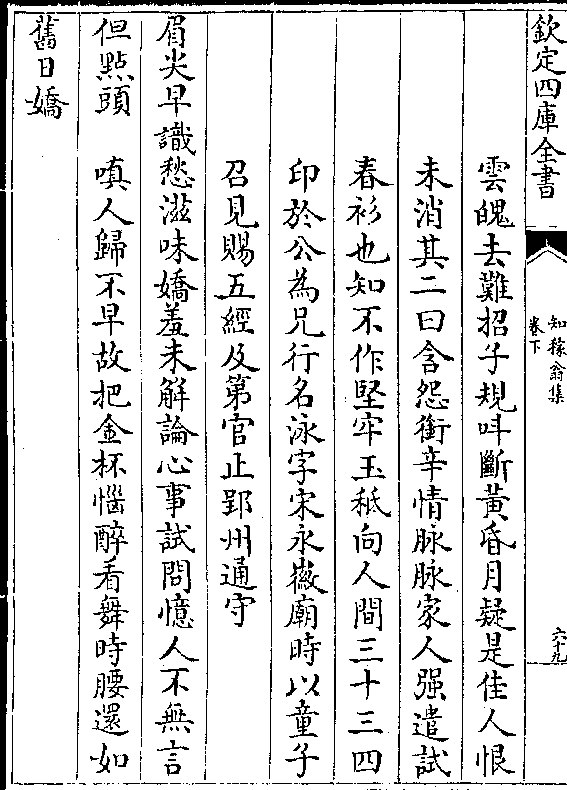 欽定四庫全書
知稼翁集
卷下
六十九
雲魄去難招子規叫斷黃昏月疑是佳人恨
未消其二曰含怨銜辛情脉脉家人强遣試
春衫也知不作堅牢玉秪向人間三十三四
印於公為兄行名泳字宋永徽廟時以童子
召見賜五經及第官止郢州通守
眉尖早識愁滋味嬌羞未解論心事試問憶人不無言
但點頭　嗔人歸不早故把金杯惱醉看舞時腰還如
舊日嬌